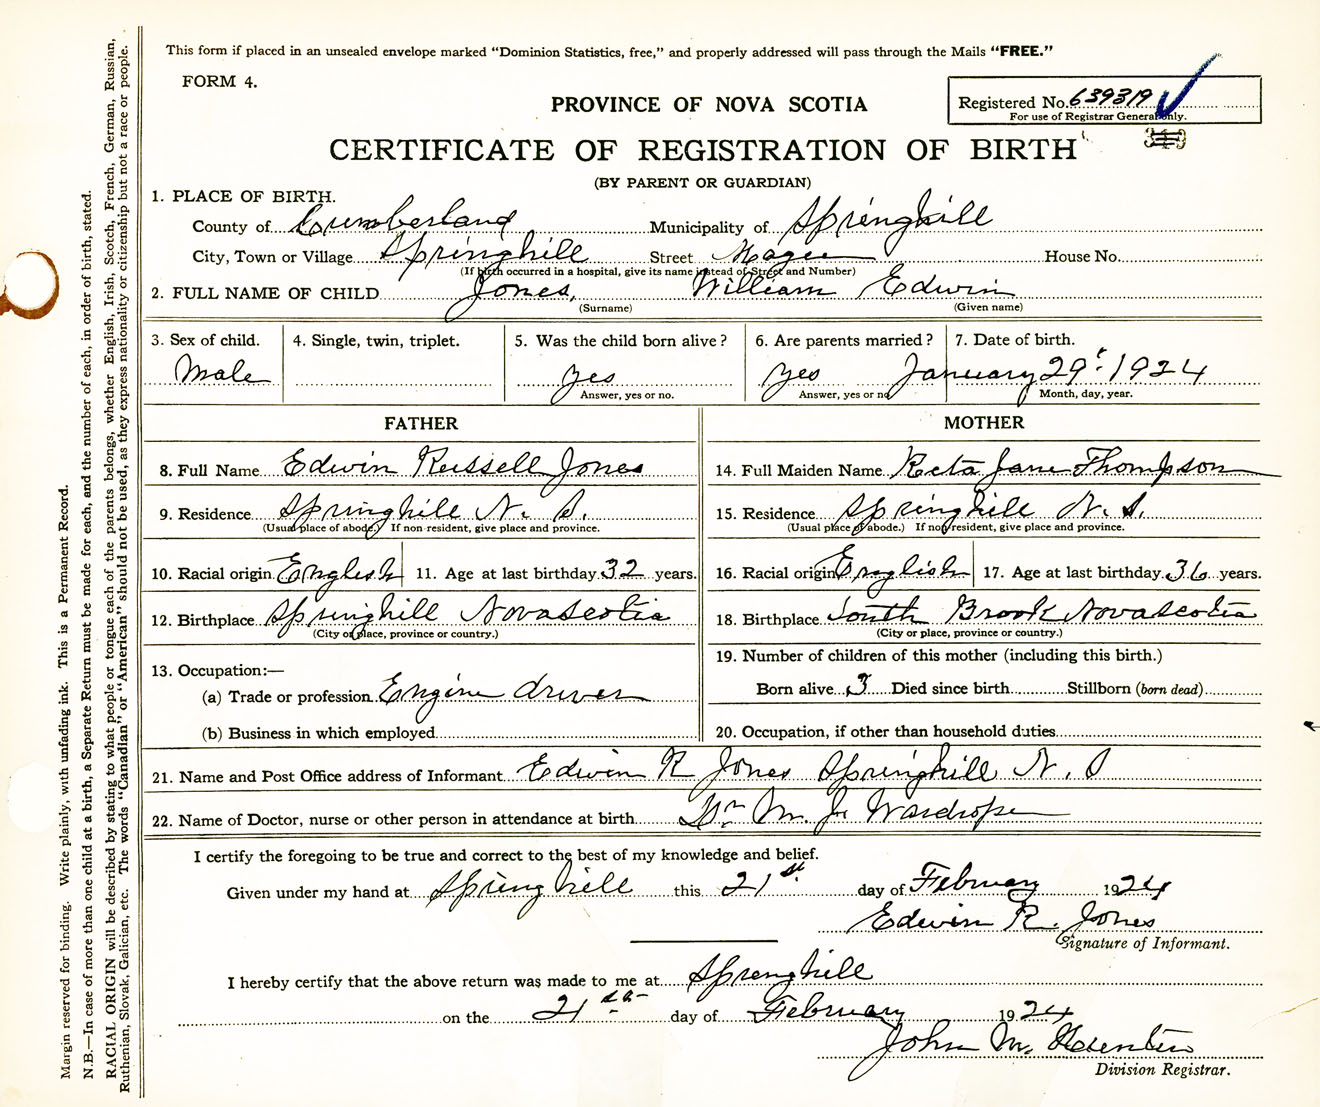 This form if placed in an unsealed envelope marked “Dominion Statistics, free,” and properly addressed will pass through the Mails “FREE.”
FORM 4.
PROVINCE OF NOVA SCOTIA
Registered No. 639319
For use of Registrar General only.
CERTIFICATE OF REGISTRATION OF BIRTH
(BY PARENT OR GUARDIAN)
1. PLACE OF BIRTH.
County of Cumberland Municipality of Springhill
City, Town or Village Springhill Street Magee House No.
(If birth occurred in a hospital, give its name instead of Street and Number)
2. FULL NAME OF CHILD Jones, William Edwin
(Surname) (Given name)
3. Sex of child. 4. Single, twin, triplet. 5. Was the child born alive? 6. Are parents married? 7. Date of birth.
Male yes yes January 29 1924
Answer, yes or no. Answer, yes or no Month, day, year.
FATHER MOTHER
8. Full Name Edwin Russell Jones 14. Full Maiden Name Reta Jane Thompson
9. Residence Springhill N. S. 15. Residence Springhill N. S.
(Usual place of abode.) If non resident, give place and province. (Usual place of abode.) If non resident, give place and province.
10. Racial origin English 11. Age at last birthday 32 years. 16. Racial origin English 17. Age at last birthday 36 years.
12. Birthplace Springhill Novascotia 18. Birthplace South Brook Novascotia
(City or place, province or country.) (City or place, province or country.)
13. Occupation:— 19. Number of children of this mother (including this birth.)
(a) Trade or profession Engine driver Born alive 3 Died since birth Stillborn (born dead)
(b) Business in which employed 20. Occupation, if other than household duties
21. Name and Post Office address of Informant Edwin R Jones Springhill N. S
22. Name of Doctor, nurse or other person in attendance at birth Dr M. J. Wardrope
I certify the foregoing to be true and correct to the best of my knowledge and belief.
Given under my hand at Springhill this 21st day of February 1924
Edwin R. Jones
Signature of Informant.
I hereby certify that the above return was made to me at Springhill
on the 21st day of February 1924
John M.
Division Registrar.
Margin reserved for binding. Write plainly, with unfading ink. This is a Permanent Record.
N.B.—In case of more than one child at a birth, a Separate Return must be made for each, and the number of each, in order of birth, stated.
RACIAL ORIGIN will be described by stating to what people or tongue each of the parents belongs, whether English, Irish, Scotch, French, German, Russian,
Ruthenian, Slovak, Galician, etc. The words “Canadian” or “American” should not be used, as they express nationality or citizenship but not a race or people.